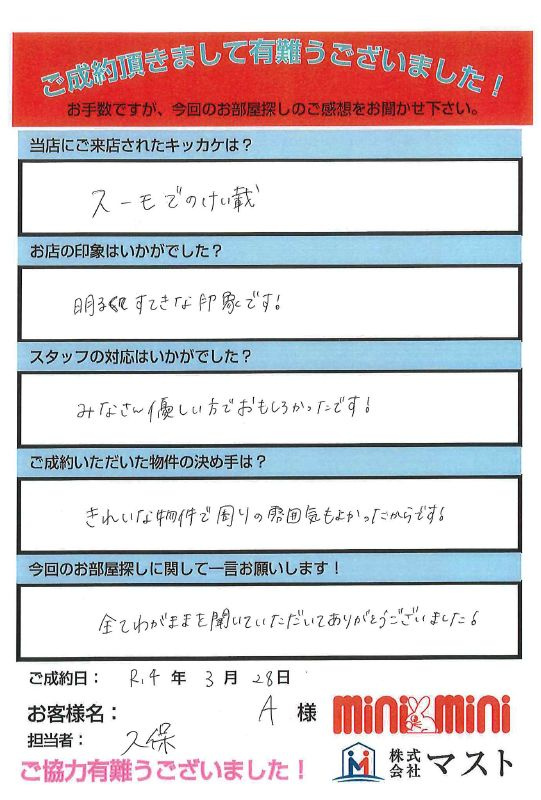 ご成約頂きまして有難うございました！
お手数ですが、今回のお部屋探しのご感想をお聞かせ下さい。
当店にご来店されたキッカケは？
スーモでのけい載
お店の印象はいかがでした？
明るくすてきな印象です！
スタッフの対応はいかがでした？
みなさん優しい方でおもしろかったです！
ご成約いただいた物件の決め手は？
きれいな物件で周りの雰囲気もよかったからです！
今回のお部屋探しに関して一言お願いします！
全てわがままを聞いていただいてありがとうございました！
ご成約日： R.4 年 3 月 28日
お客様名： A 様
mini mini
担当者： 久保
株式会社 マスト
ご協力有難うございました！